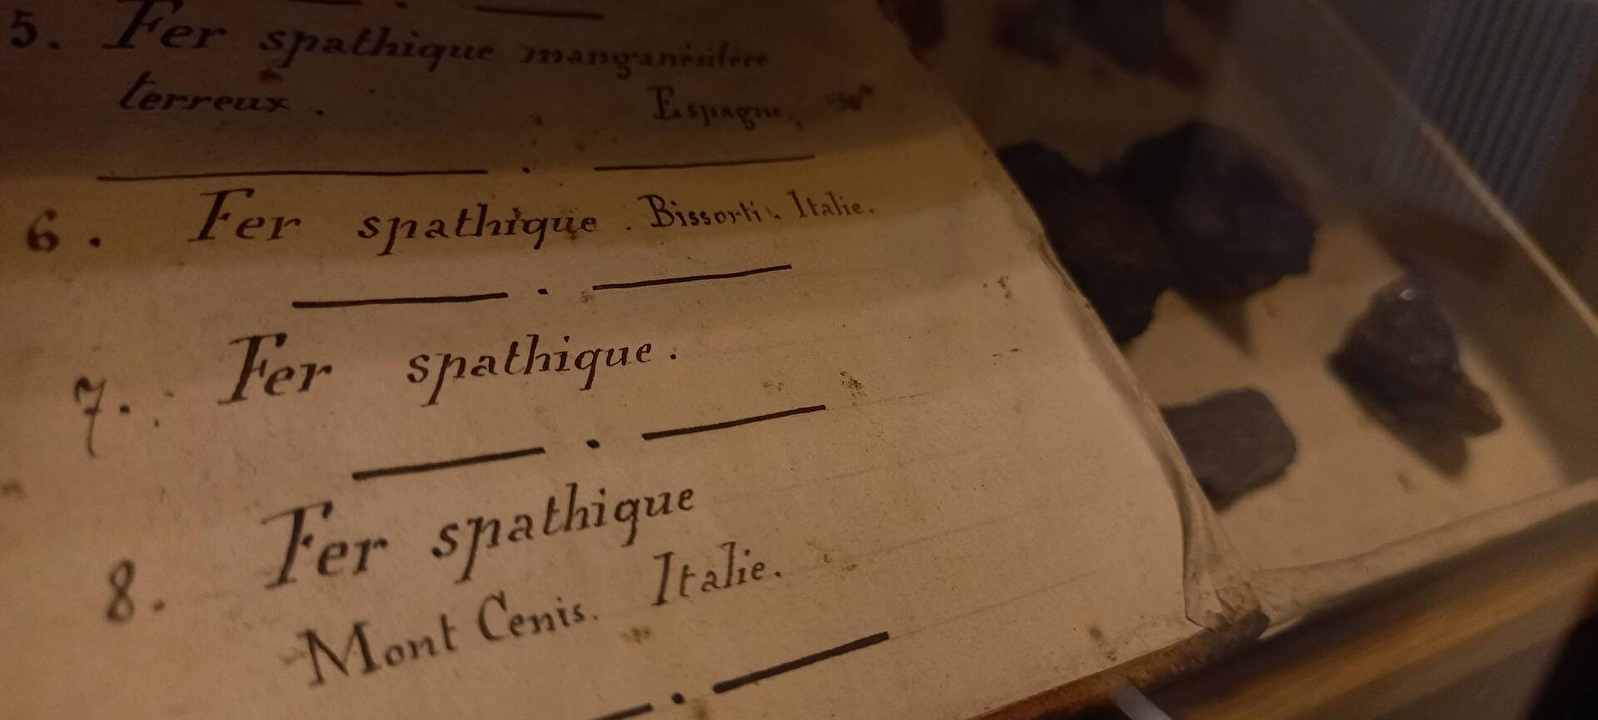 5. Fer spathique manganésifère
terreux. Espagne.
6. Fer spathique. Bissorti. Italie.
7. Fer spathique.
8. Fer spathique
Mont Cenis. Italie.